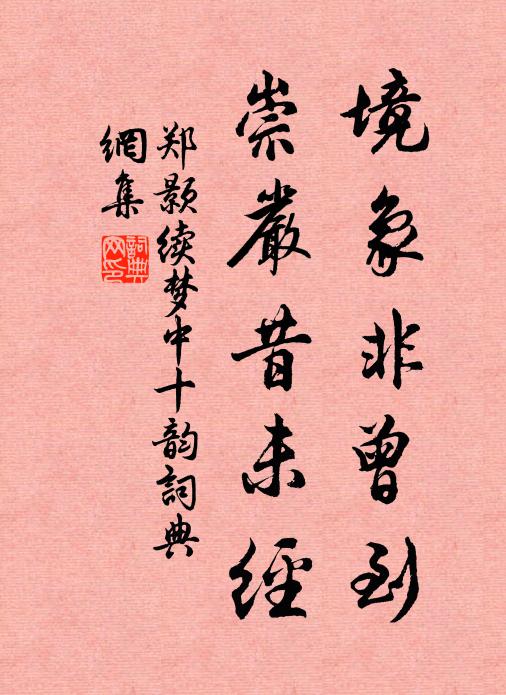 境象非曾到
崇嚴昔未經
郑颢续梦中十韵詞典
網集
詞典
网印